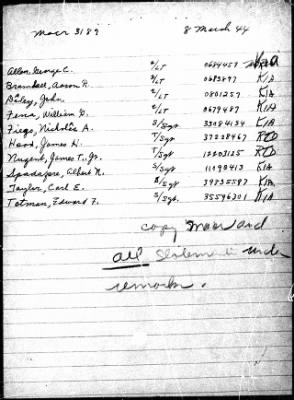 Macr 3189 8 March 44
Allen, George C. 2/LT 0684457 KIA
Bramhall, Aaron R. 2/LT 0683897 KIA
Bailey, John 2/LT 0801259 KIA
Fena, William G. 2/LT 0679487 KIA
Fiego, Nicholas A. S/Sgt 33084134 KIA
Haas, James H. T/Sgt 37228467 RTD
Nugent, James T. Jr. T/Sgt 12203125 RTD
Spadafore, Albert N. S/Sgt 11098413 KIA
Taylor, Carl E. S/Sgt 39835587 KIA
Totman, Edward F. S/Sgt. 35546201 KIA
copy Macr and
all Statements under
remarks.